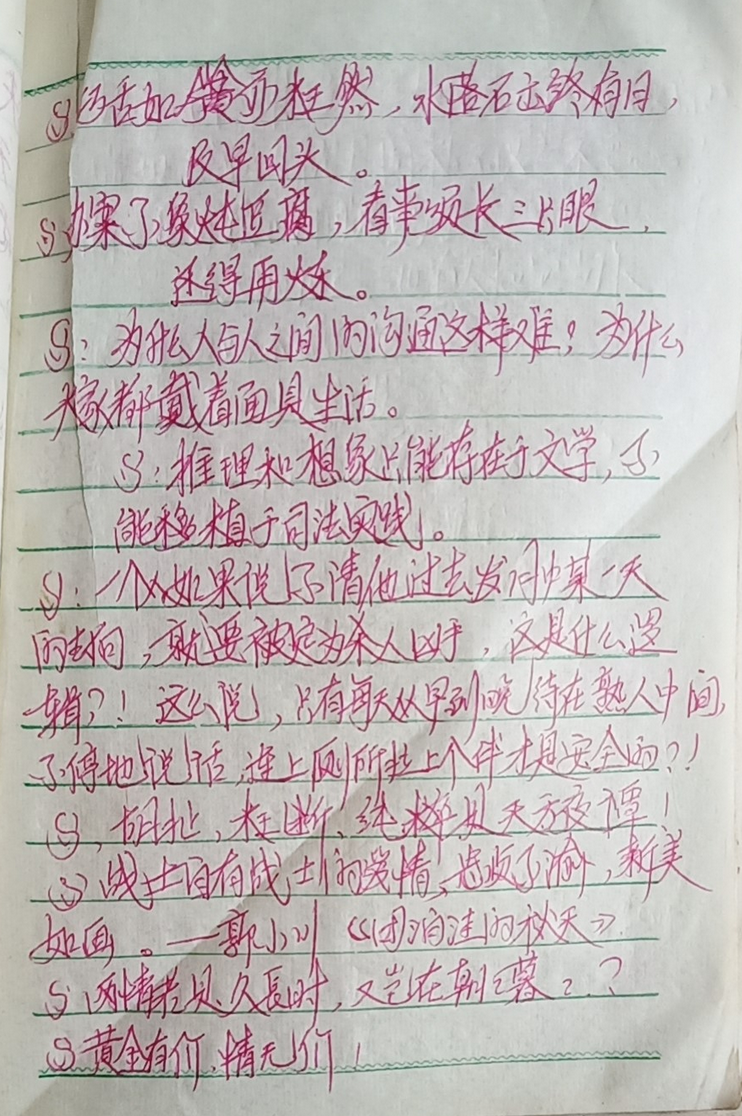 S 巧舌如簧亦枉然，水落石出终有日，
及早回头。
S 办案不像炖豆腐，看事须长三只眼，
还得用火炼。
S：为什么人与人之间的沟通这样难？为什么
大家都戴着面具生活。
S：推理和想象只能存在于文学，不
能移植于司法实践。
S：一个人如果说不清他过去岁月中某一天
的去向，就要被定为杀人凶手，这是什么逻
辑？！这么说，只有每天从早到晚待在熟人中间，
不停地说话，连上厕所拉上个伴才是安全的？！
S，胡扯，枉断，纯粹是天方夜谭！
S 战士自有战士的爱情，忠贞不渝，新美
如画。——郭小川《团泊洼的秋天》
S 两情若是久長时，又岂在朝々暮々？
S 黄金有价，情无价！